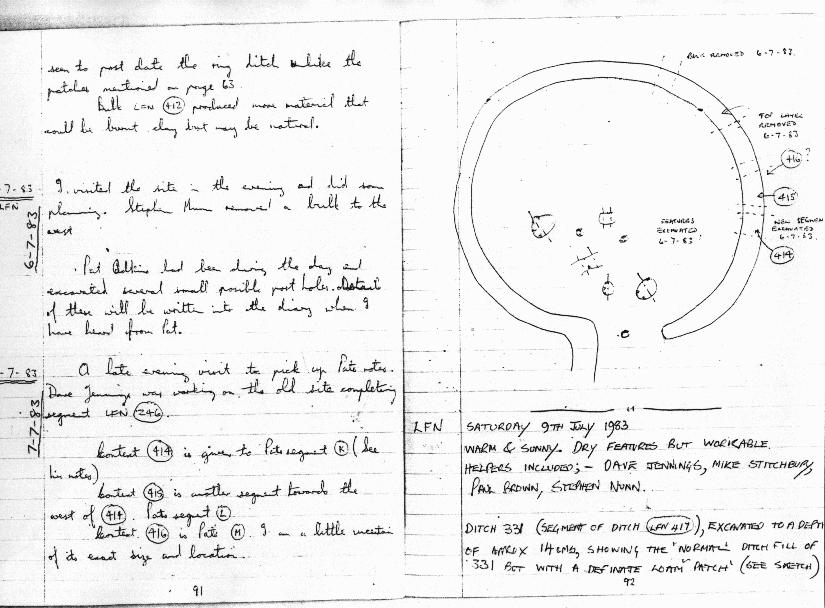 seem to post date the ring ditch unlike the
patches mentioned on page 63.
Bulk LFN 412 produced more material that
could be burnt clay but may be natural.
-7-83
LFN
6-7-83
I visited the site in the evening and did some
planning. Stephen Nunn removed a bulk to the
west
Pat Adkins had been during the day and
excavated several small possible post holes. Details
of these will be written into the diary when I
have heard from Pat.
-7-83
7-7-83
A late evening visit to pick up Pats notes.
Dave Jennings was working on the old site completing
segment LFN 246.
Context 414 is given to Pats segment K (See
his notes)
Context 415 is another segment towards the
west of 414. Pats segment L.
Context 416 is Pats M. I am a little uncertain
of its exact size and location.
91
BULK REMOVED 6-7-83
TOP LAYER
REMOVED
6-7-83
416?
415
FEATURES
EXCAVATED
6-7-83
NEW SEGMEN
EXCAVATED
6-7-83
414
LFN
SATURDAY 9TH JULY 1983
WARM & SUNNY. DRY FEATURES BUT WORKABLE.
HELPERS INCLUDED; - DAVE JENNINGS, MIKE STITCHBURY,
PAUL BROWN, STEPHEN NUNN.
DITCH 331 (SEGMENT OF DITCH LFN 417), EXCAVATED TO A DEPTH
OF APROX 14CMS, SHOWING THE "NORMAL" DITCH FILL OF
331 BUT WITH A DEFINATE LOAM 'PATCH' (SEE SKETCH)
92